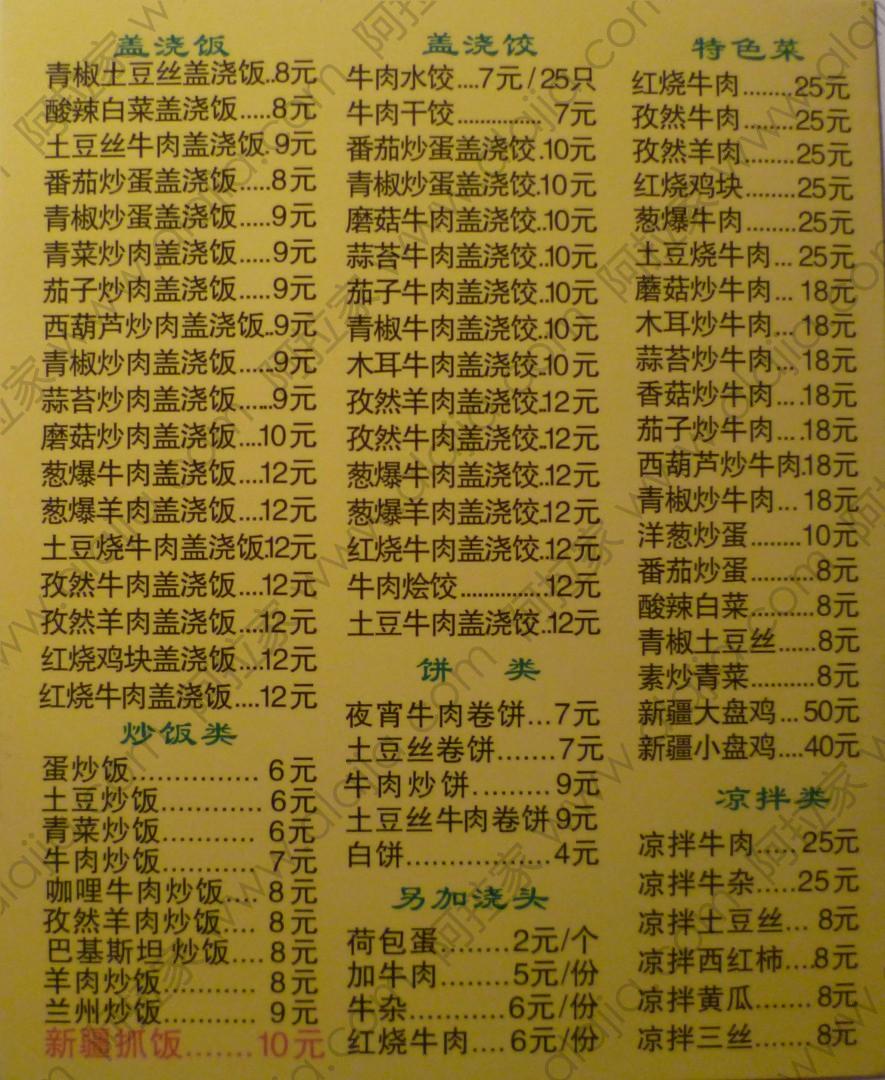 盖浇饭
青椒土豆丝盖浇饭..8元
酸辣白菜盖浇饭.....8元
土豆丝牛肉盖浇饭.9元
番茄炒蛋盖浇饭.....8元
青椒炒蛋盖浇饭.....9元
青菜炒肉盖浇饭.....9元
茄子炒肉盖浇饭.....9元
西葫芦炒肉盖浇饭..9元
青椒炒肉盖浇饭......9元
蒜苔炒肉盖浇饭......9元
磨菇炒肉盖浇饭....10元
葱爆牛肉盖浇饭....12元
葱爆羊肉盖浇饭....12元
土豆烧牛肉盖浇饭.12元
孜然牛肉盖浇饭....12元
孜然羊肉盖浇饭....12元
红烧鸡块盖浇饭....12元
红烧牛肉盖浇饭....12元
炒饭类
蛋炒饭...............6元
土豆炒饭............6元
青菜炒饭............6元
牛肉炒饭............7元
咖哩牛肉炒饭....8元
孜然羊肉炒饭....8元
巴基斯坦炒饭....8元
羊肉炒饭............8元
兰州炒饭............9元
新疆抓饭.......10元
盖浇饺
牛肉水饺....7元/25只
牛肉干饺................7元
番茄炒蛋盖浇饺.10元
青椒炒蛋盖浇饺.10元
磨菇牛肉盖浇饺..10元
蒜苔牛肉盖浇饺..10元
茄子牛肉盖浇饺..10元
青椒牛肉盖浇饺..10元
木耳牛肉盖浇饺..10元
孜然羊肉盖浇饺..12元
孜然牛肉盖浇饺..12元
葱爆牛肉盖浇饺..12元
葱爆羊肉盖浇饺..12元
红烧牛肉盖浇饺..12元
牛肉烩饺................12元
土豆牛肉盖浇饺..12元
饼 类
夜宵牛肉卷饼...7元
土豆丝卷饼.......7元
牛肉炒饼.........9元
土豆丝牛肉卷饼9元
白饼.................4元
另加浇头
荷包蛋........2元/个
加牛肉........5元/份
牛杂............6元/份
红烧牛肉....6元/份
特色菜
红烧牛肉........25元
孜然牛肉........25元
孜然羊肉........25元
红烧鸡块........25元
葱爆牛肉........25元
土豆烧牛肉...25元
蘑菇炒牛肉...18元
木耳炒牛肉...18元
蒜苔炒牛肉...18元
香菇炒牛肉....18元
茄子炒牛肉....18元
西葫芦炒牛肉.18元
青椒炒牛肉...18元
洋葱炒蛋........10元
番茄炒蛋..........8元
酸辣白菜..........8元
青椒土豆丝......8元
素炒青菜..........8元
新疆大盘鸡...50元
新疆小盘鸡....40元
凉拌类
凉拌牛肉.....25元
凉拌牛杂.....25元
凉拌土豆丝...8元
凉拌西红柿....8元
凉拌黄瓜.......8元
凉拌三丝.......8元
阿拉家 www.alajia.com